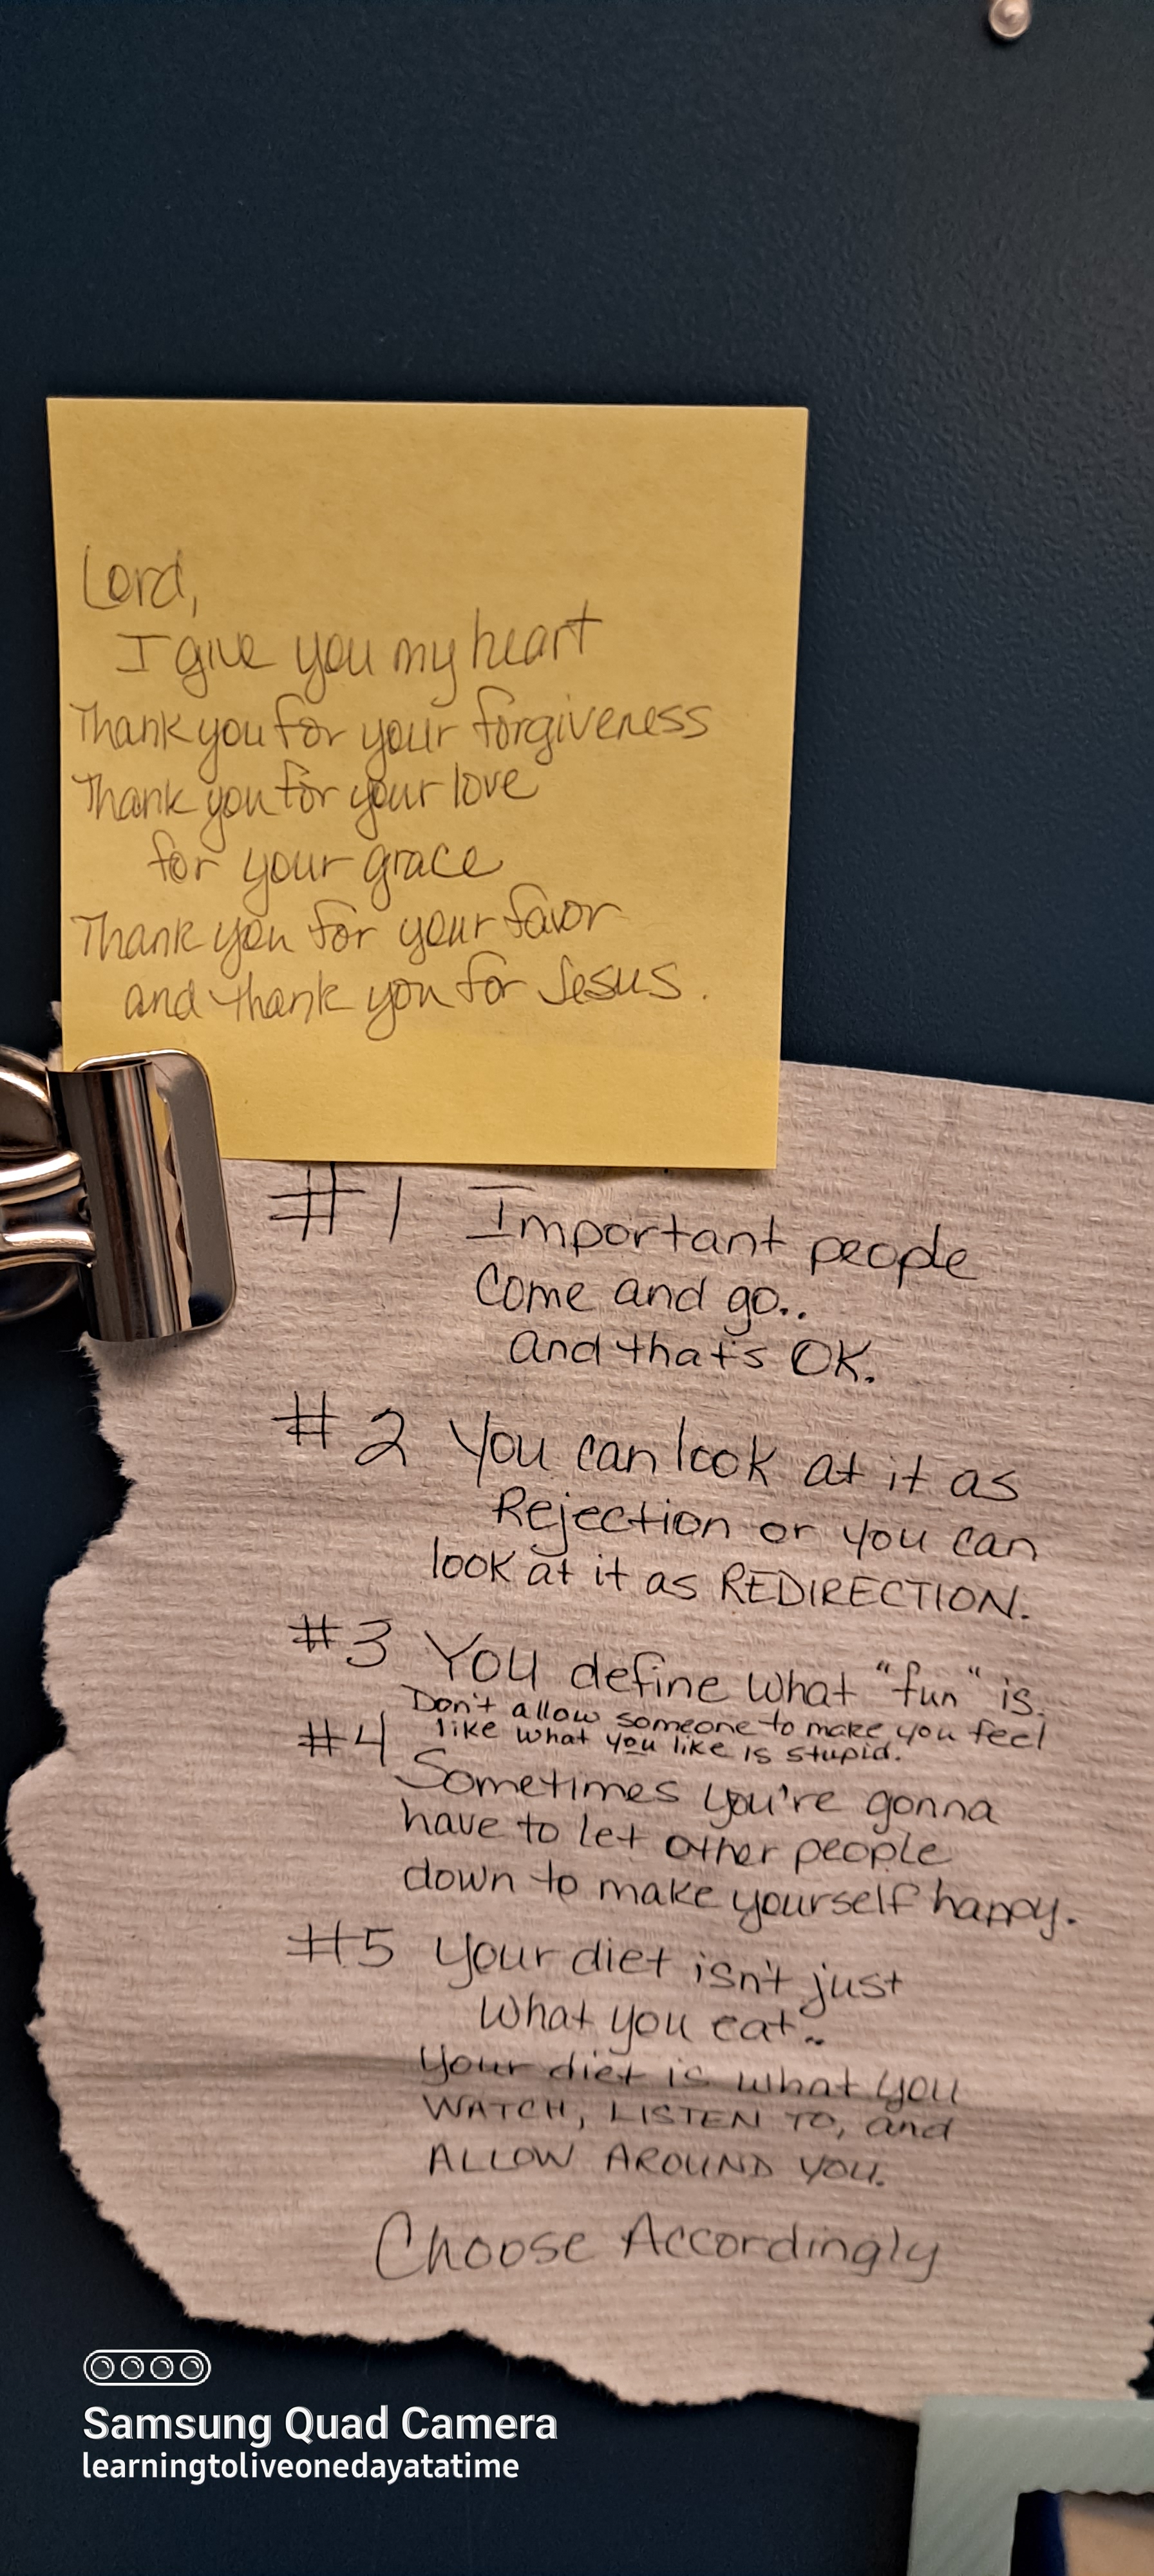 Lord,
I give you my heart
Thank you for your forgiveness
Thank you for your love
for your grace
Thank you for your favor
and thank you for Jesus.
#1 Important people
Come and go..
and that's OK.
#2 You can look at it as
Rejection or you can
look at it as REDIRECTION.
#3 You define what "fun" is.
Don't allow someone to make you feel
like what you like is stupid.
#4
Sometimes you're gonna
have to let other people
down to make yourself happy.
#5 Your diet isn't just
what you eat..
your diet is what you
WATCH, LISTEN TO, and
ALLOW AROUND YOU.
Choose Accordingly
Samsung Quad Camera
learningtoliveonedayatatime